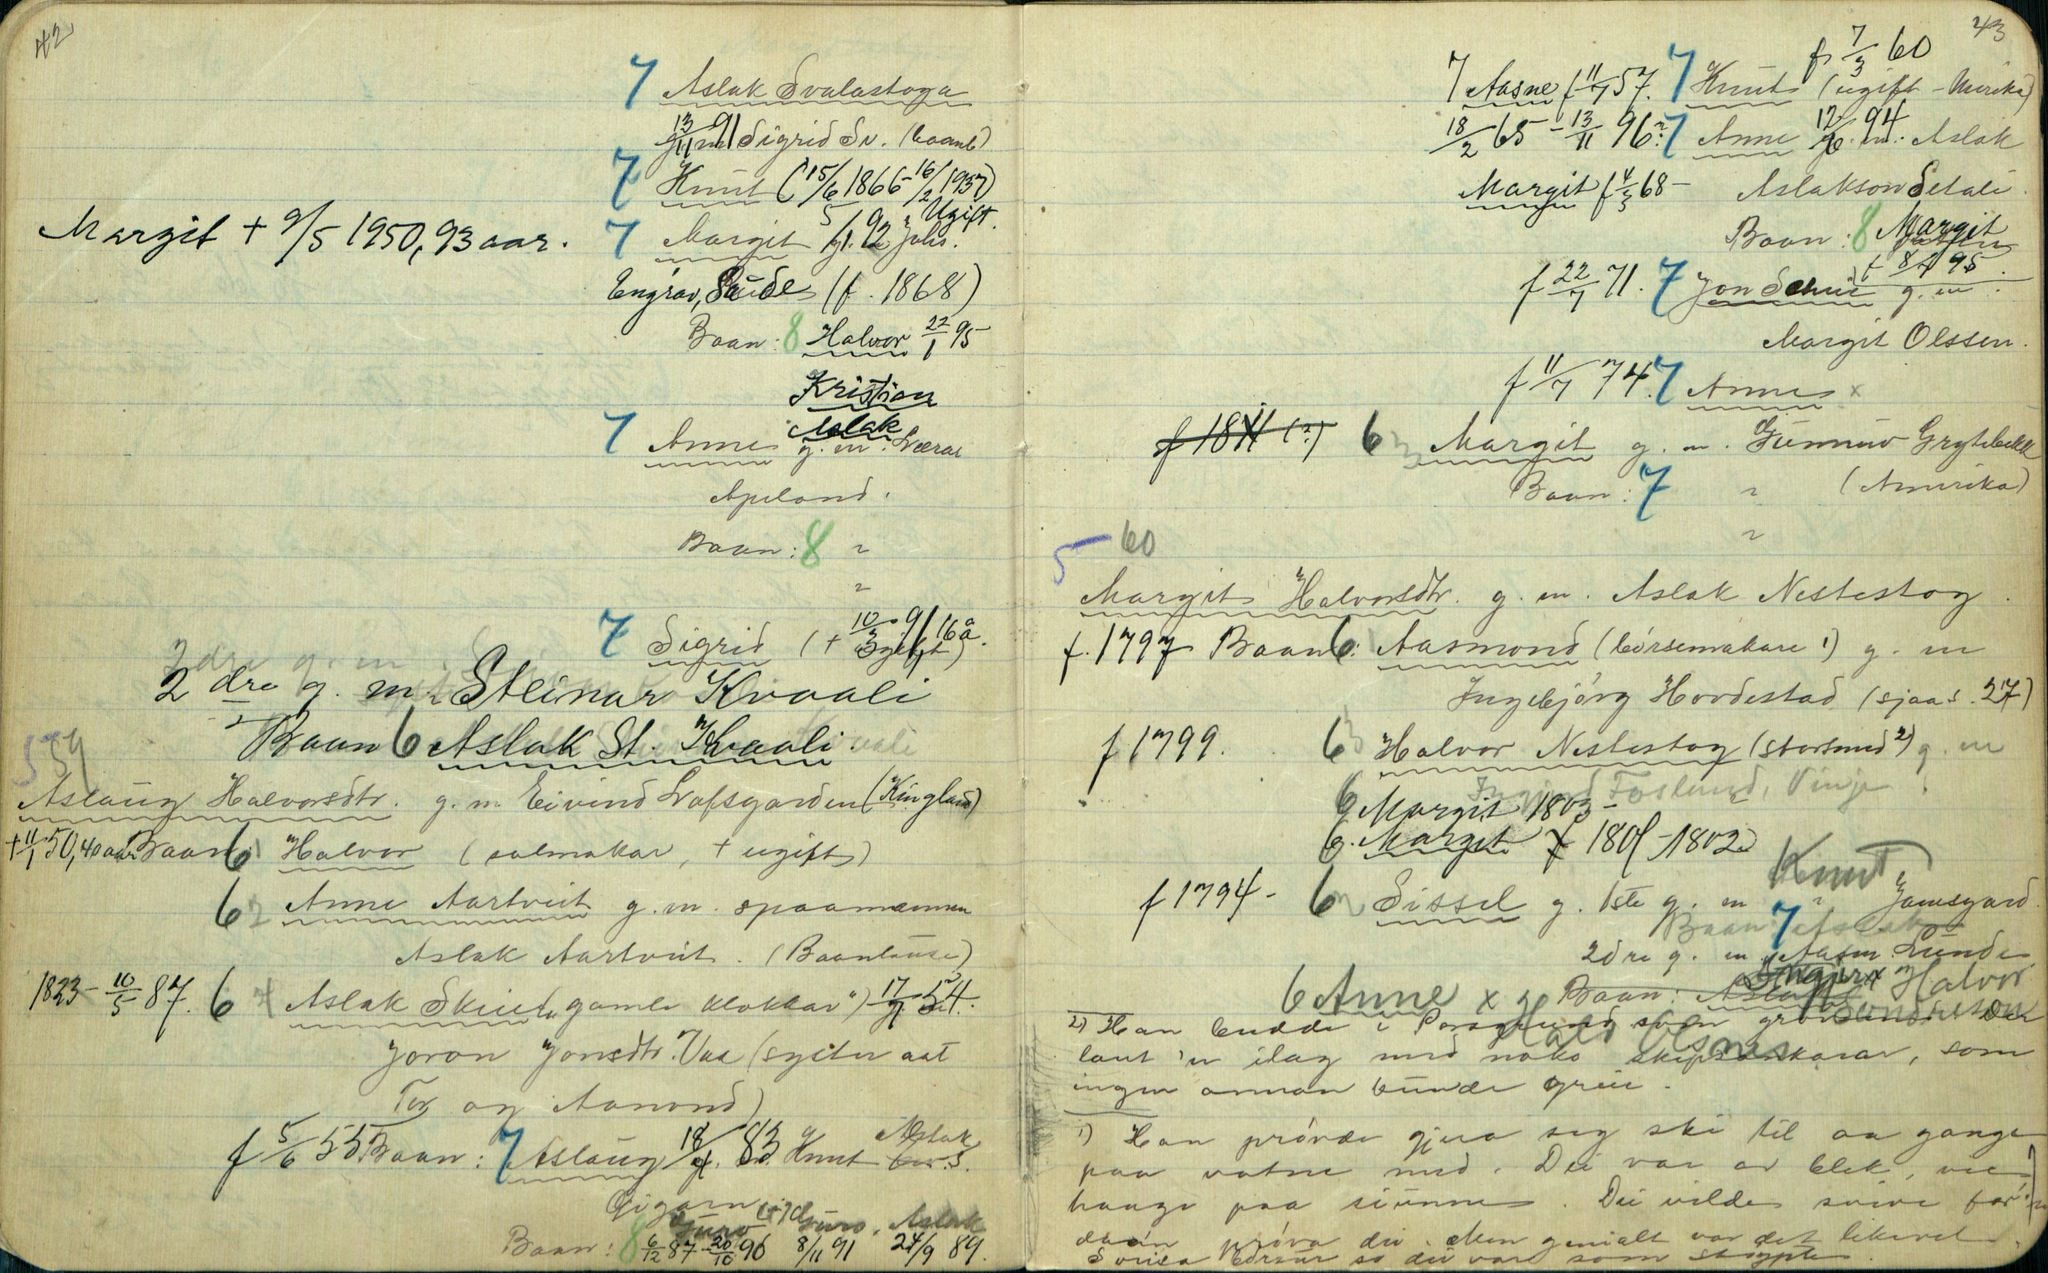 42
7 Aslak Svalastoga
13/11 91 g. m. Sigrid Sv. (baanl)
7 Knut (15/6 1866 - 16/2 1937)
Ugift.
Margit + 9/5 1950, 93 aar.
7 Margit g. 5/1 92 m Johs.
Engrav, Saude (f. 1868)
Baan: 8 Halvor 22/1 95
Kristian
Aslak
7 Anne g. m. Sveraa
Apeland.
Baan: 8 "
"
7 Sigrid (+ 10/3 91, 16 a. ugift)
2dre g. m.
2 dre g. m. Steinar Kvaali
Baan 6 Aslak St. Kvaali.
5 59
Aslaug Halvorsdtr. g. m. Eivind Loftsgarden (Kingland)
+ 11/1 50, 40 aar Baan: 6 1 Halvor (salmakar, + ugift)
6 2 Anne Aartveit g. m. spaamannen
Aslak Aartveit. (Baanlause)
1823 - 10/5 87. 6 4 Aslak Skiei („gamle klokkar") 17/7 54. g. m.
Joron Jonsdtr. Vaa (syster aat
Tor og Aanond)
f 5/6 55 Baan: 7 Aslaug 18/7 83 g. m. Knut Aslak
Gigarn
Guro Guro, Aslak
Baan: 8 6/12 87 - 20/10 96 8/11 91 24/9 89.
43
f 7/3 60
7 Aasne f 11/7 57. 7 Knut (ugift - Amerika)
18/2 65 - 13/11 96 7 Anne 12/6 94 g. m. Aslak
Margit f 4/3 68 - Aslakson Setali.
Baan: 8 Margit
+ 8/4 95.
f 22/7 71. 7 Jon Schui g. m.
Margit Olssen.
f 11/7 74. 7 Anne x
f 1811 (?) 6 3 Margit g. m. Gunnuv Grytebekk
Baan: 7 " (Amerika)
"
5 60
Margit Halvorsdtr. g. m. Aslak Nestestog.
f. 1797 Baan: 6 Aasmond (børsemakare 1) g. m
Ingebjørg Hovdestad (sjaa s. 27)
f 1799. 6 3 Halvor Nestestog (stortsmed 2) g. m
Ingjerd Fosland, Vinje
6 Margit 1803 -
6. Margit f 1801 - 1802
f 1794 - 6 2 Sissel g. 1ste g. m Knut Jamsgard.
Baan: 7 Aslak
2dre g. m. Aasm. Lunde
Baan: Aslak Ingjer x Halvor
6 Anne x g Halv Sondreson
2) Han budde i Porsgrund som grovsmed. Der
laut 'n ilag med noko skipsankarar, som
ingen annan kunde greie.
1) Han prøvde gjera seg ski til aa gange
paa vatne med. Dei var av blek, vei
haage paa siunne. Dei vilde svive for 'n
daa'n prøva dei. Men genialt var det likevel.
Svisa børsur so dei vart som støypte.